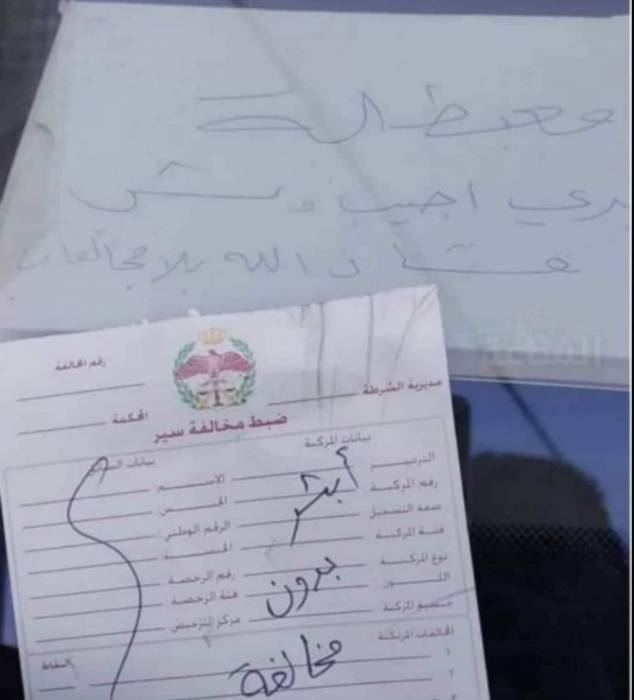 معطلة
بدي اجيب ونش
عشان الله بلا مخالفات
رقم المخالفة
مديرية الشرطة
المحكمة
ضبط مخالفة سير
بيانات المركبة بيانات
الترميز الاسم
رقم المركبة الجنس
أبشر
صفة التسجيل الرقم الوطني
فئة المركبة الجنسية
نوع المركبة رقم الرخصة
بدون
اللون فئة الرخصة
المركبة مركز الترخيص
المخالفات المرتكبة النقاط
مخالفة
١
٢